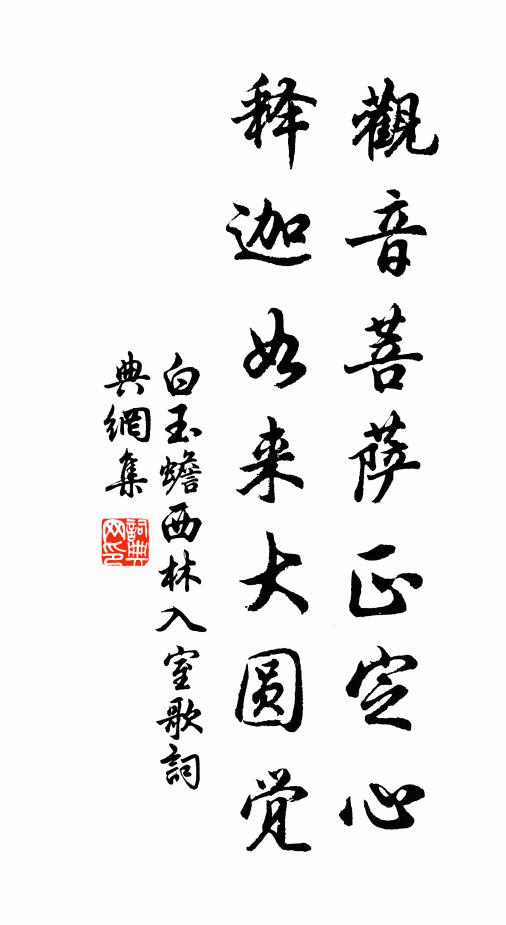 觀音菩萨正定心
释迦如来大圆觉
白玉蟾西林入室歌詞
典網集
詞典网印